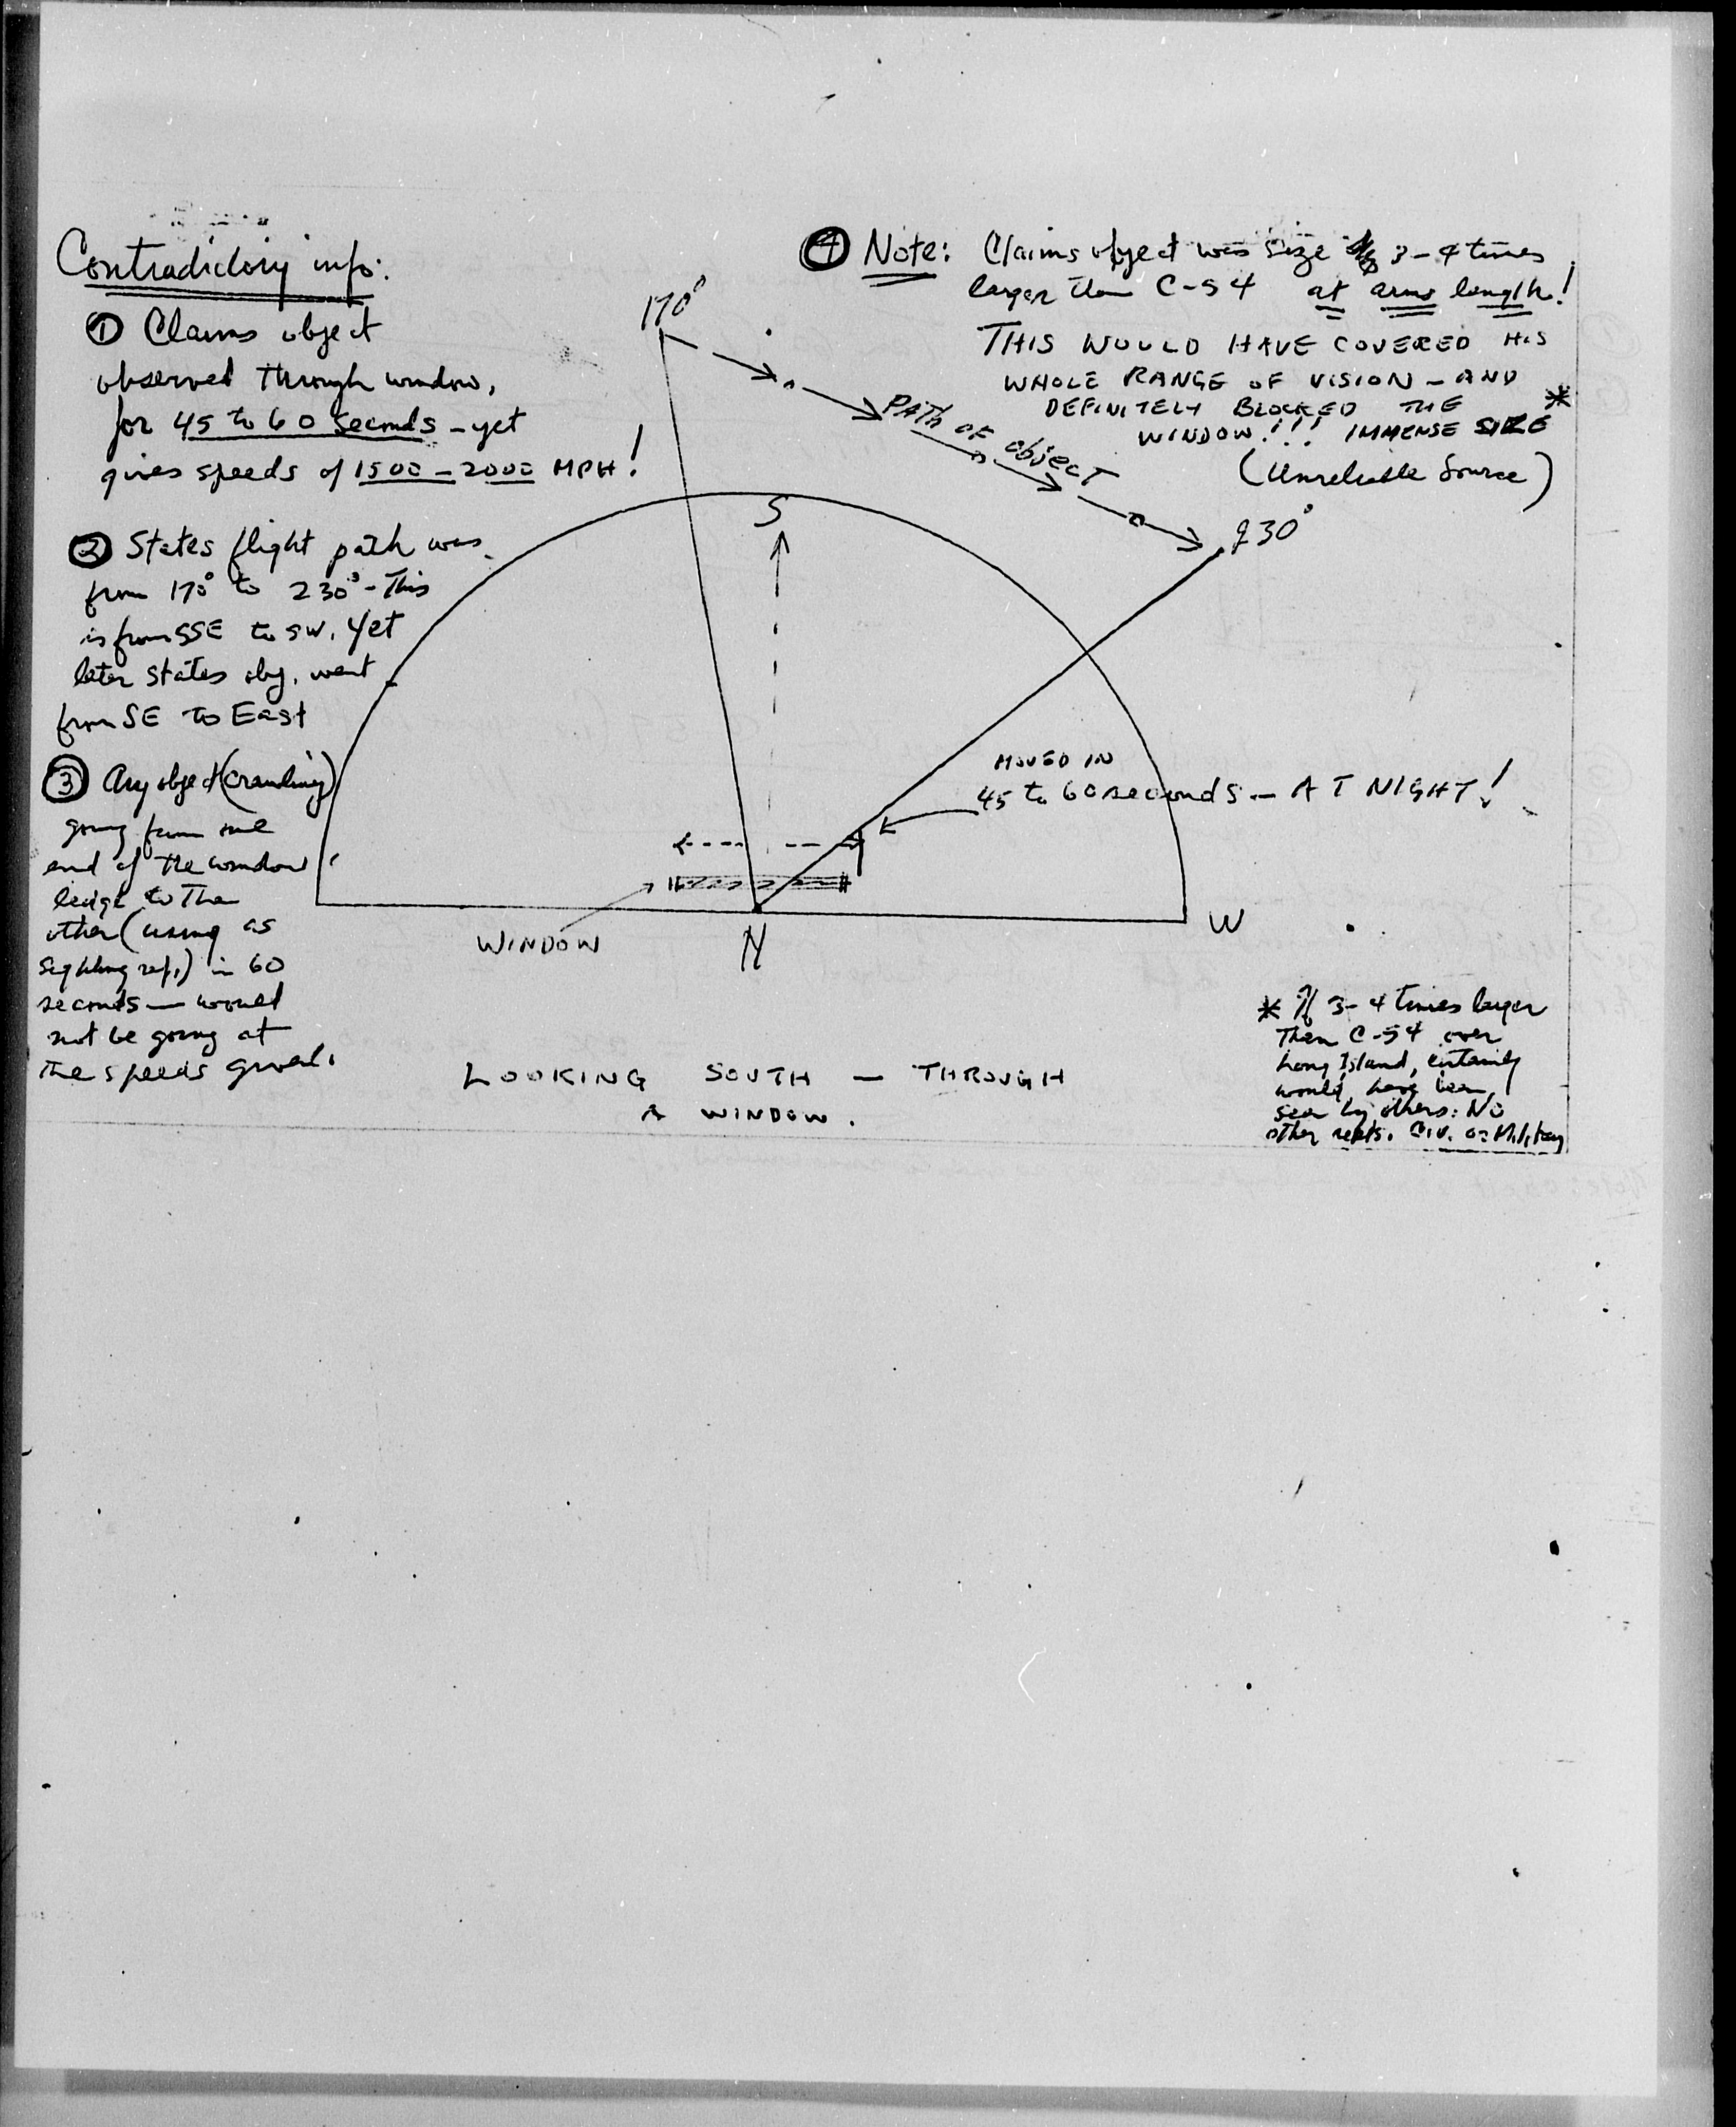 Contradictory info:
① Claims object
observed through window,
for 45 to 60 seconds - yet
gives speeds of 1500 - 2000 MPH!
② States flight path was
from 170° to 230° - This
is from SSE to SW. Yet
later states obj. went
from SE to East
③ Any object (crawling)
going from one
end of the window
ledge to the
other (using as
sighting ref.) in 60
seconds — would
not be going at
the speeds given.
④ Note: Claims object was size 3-4 times
larger than C-54 at arms length!
THIS WOULD HAVE COVERED HIS
WHOLE RANGE OF VISION - AND
DEFINITELY BLOCKED THE *
WINDOW!!! IMMENSE SIZE
(Unreliable Source)
170°
PATH OF OBJECT
230°
S
MOVED IN
45 to 60 seconds - AT NIGHT!
WINDOW
N
W
LOOKING SOUTH - THROUGH
A WINDOW.
* If 3-4 times larger
Than C-54 over
Long Island, certainly
would have been
seen by others: No
other repts. Civ. or Military